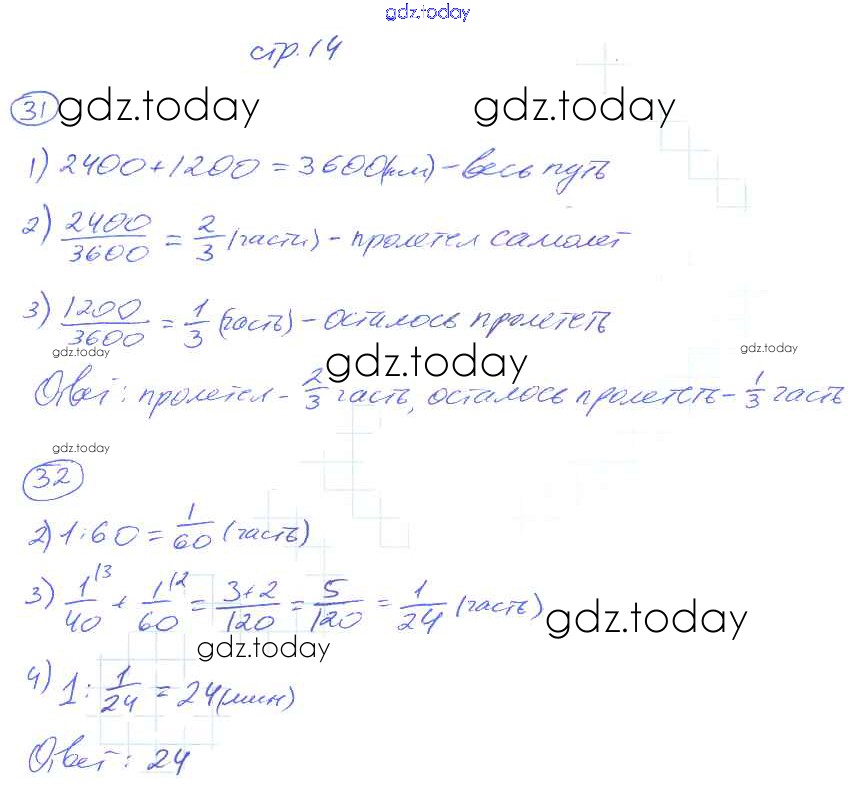 gdz.today
стр. 14
31 gdz.today gdz.today
1) 2400+1200 = 3600(км) - весь путь
2) 2400/3600 = 2/3 (части) - пролетел самолет
3) 1200/3600 = 1/3 (часть) - осталось пролететь
gdz.today gdz.today gdz.today
Ответ: пролетел - 2/3 часть, осталось пролететь - 1/3 часть
gdz.today
32
2) 1:60 = 1/60 (часть)
3) 1/40 \3 + 1/60 \2 = 3+2/120 = 5/120 = 1/24 (часть) gdz.today
gdz.today
4) 1 : 1/24 = 24 (мин)
Ответ: 24